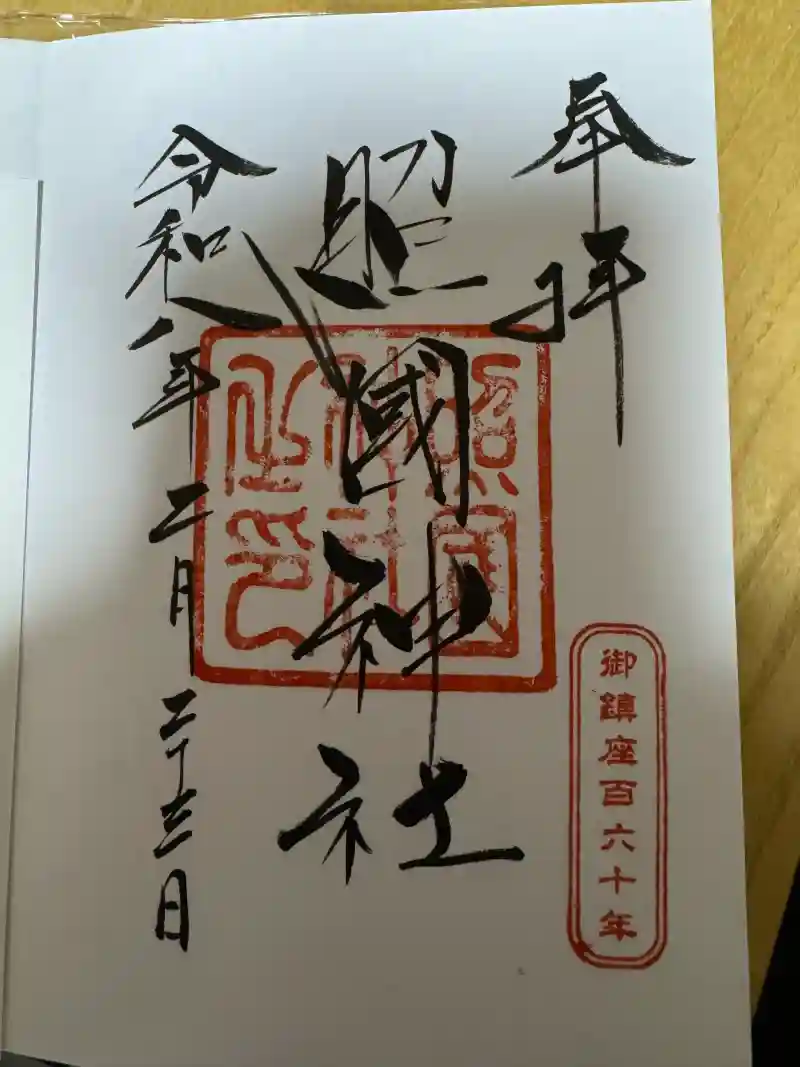 奉拝
照國神社
令和八年二月二十三日
照國神社之印
御鎮座百六十年